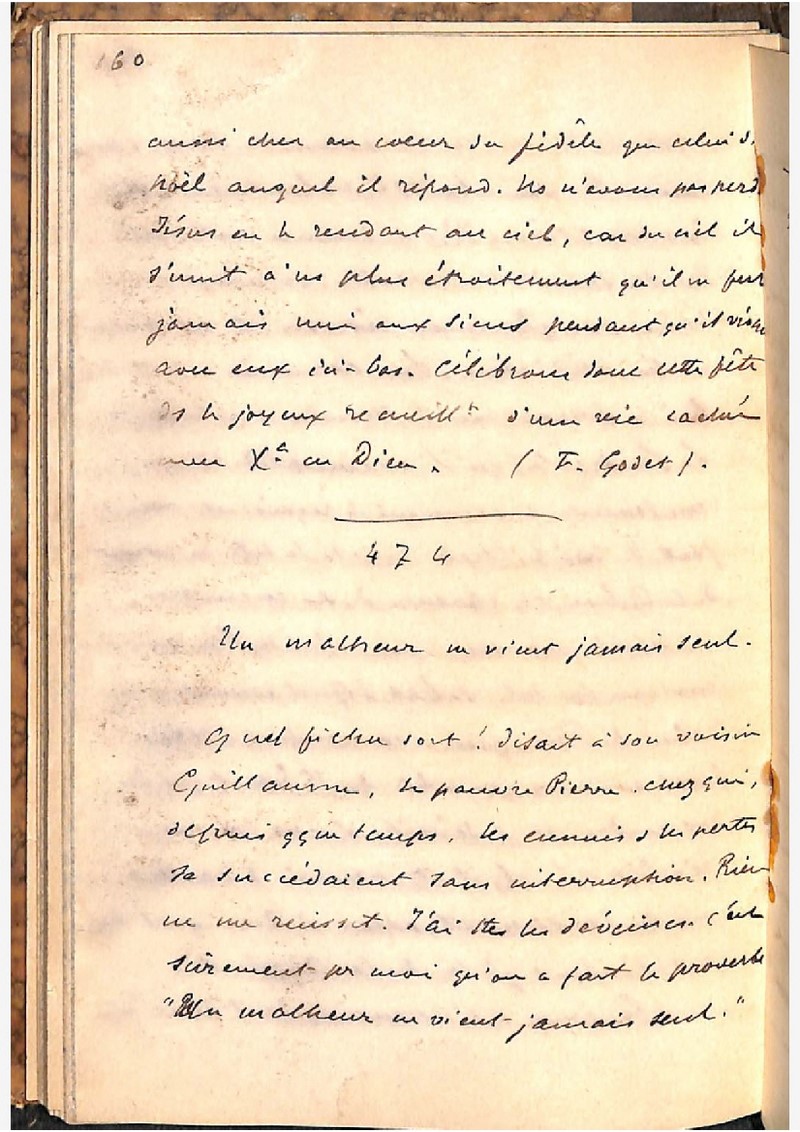 160
aussi cher au coeur du fidèle que celui d
Noël auquel il répond. Ns n'avons pas perd
Jésus en le rendant au ciel, car du ciel il
s'unit à ns plus étroitement qu'il ne fut
jamais uni aux siens pendant qu'il viva
avec eux ici-bas. Célébrons donc cette fête
ds le joyeux recueillt d'une vie cachée
avec Xt en Dieu. (F. Godet).
474
Un malheur ne vient jamais seul.
Quel fichu sort! disait à son voisin
Guillaume, le pauvre Pierre chez qui,
depuis qqe temps, les ennuis & les pertes
se succédaient sans interruption. Rien
ne me réussit. J'ai ttes les déveines. C'est
sûrement pr moi qu'on a fait le proverbe
"Un malheur ne vient jamais seul."